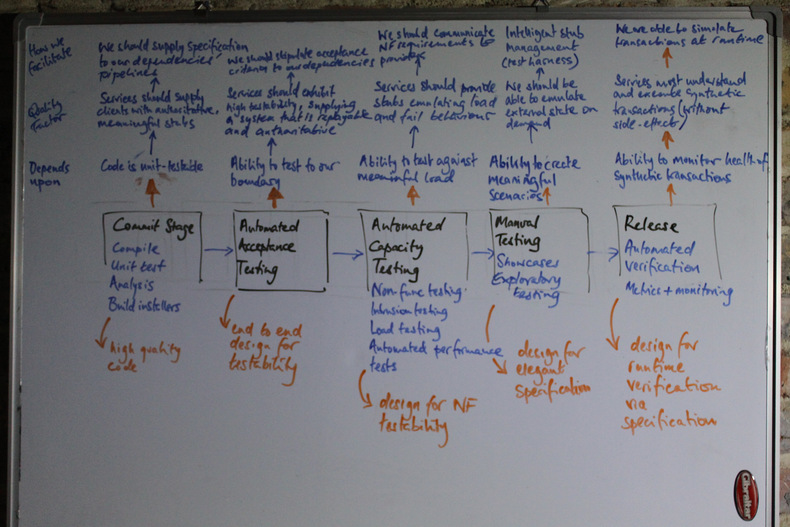 How we
facilitate
We should supply specification
to our dependencies'
pipelines
We should stipulate acceptance
criteria to our dependencies
We should communicate
NF requirements to
providers
Intelligent stub
management
(test harness)
We are able to simulate
transactions at runtime
Quality
Factor
Services should supply
clients with authoritative,
meaningful stubs
Services should exhibit
high testability, supplying
a system that is replayable
and authoritative
Services should provide
stubs emulating load
and fail behaviours
We should be
able to emulate
external state on
demand
Services must understand
and execute synthetic
transactions (without
side-effect)
Depends
upon
Code is unit-testable
Ability to test to our
boundary
Ability to test against
meaningful load
Ability to create
meaningful
scenarios
Ability to monitor health of
synthetic transactions
Commit Stage
Compile
Unit test
Analysis
Build installers
high quality
code
Automated
Acceptance
Testing
end to end
design for
testability
Automated
Capacity
Testing
Non-func testing
Intrusion testing
Load testing
Automated performance
tests
design for NF
testability
Manual
Testing
Showcases
Exploratory
testing
design for
elegant
specification
Release
Automated
verification
Metrics + monitoring
design for
runtime
verification
via
specification
Gibraltar